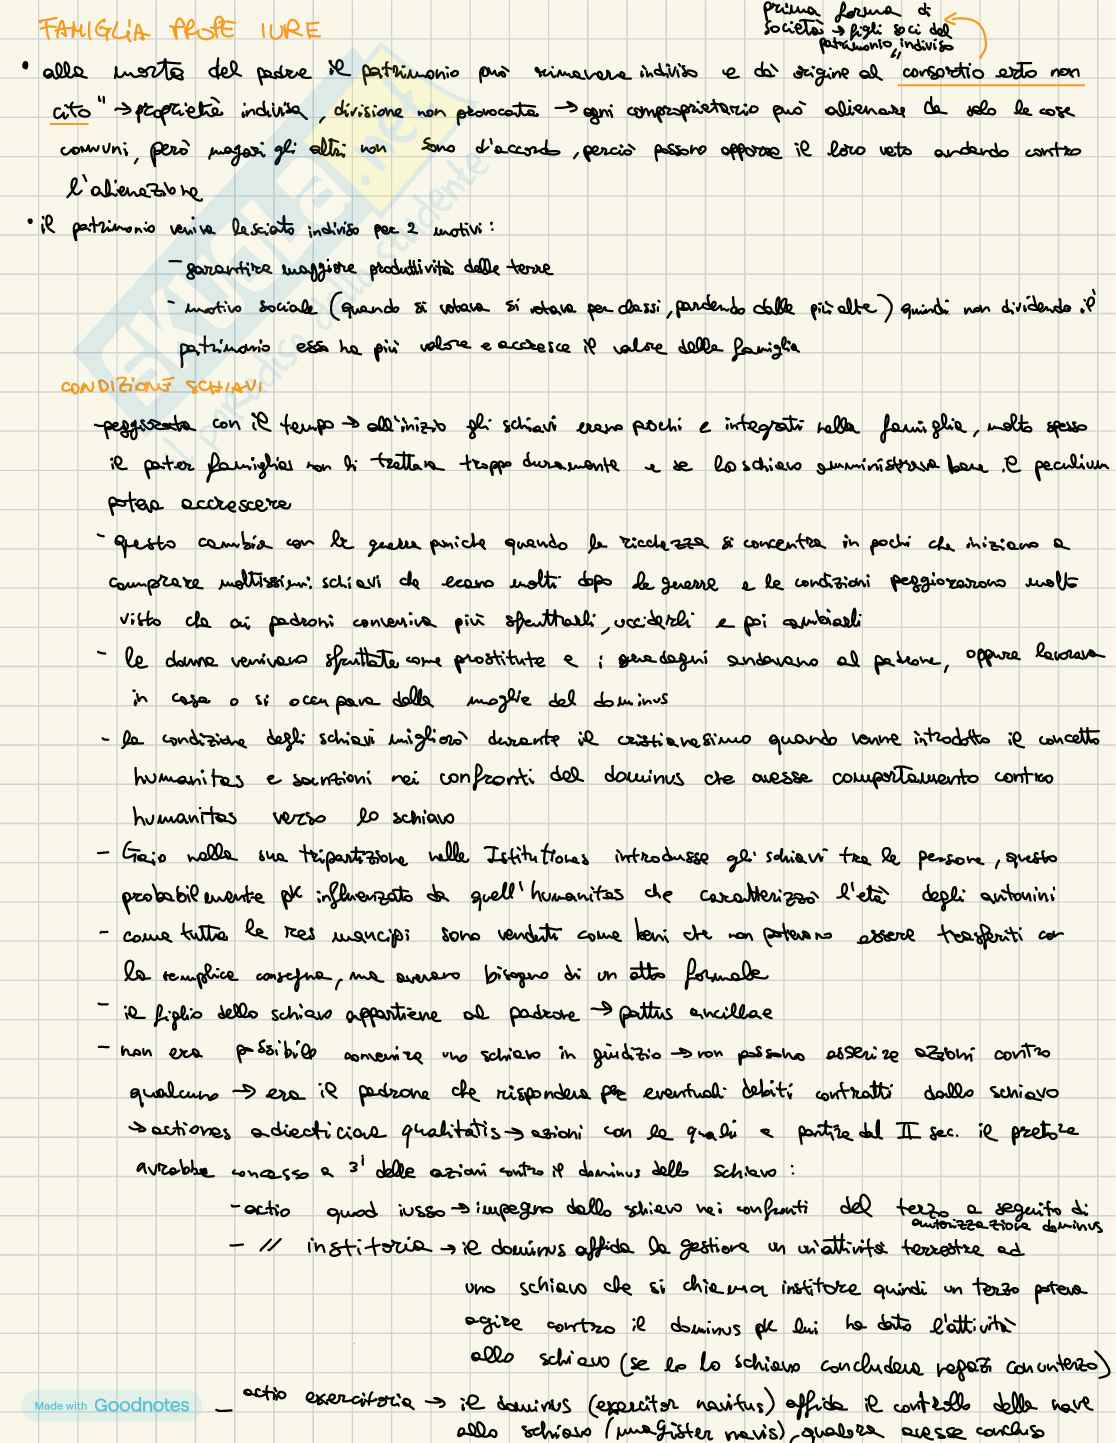 FAMIGLIA PROPE IURE
prima forma di
società → figli soci del
patrimonio indiviso
• alla morte del padre il patrimonio può rimanere indiviso e dà origine al "consortio erto non
cito" → proprietà indivisa, divisione non provocata → ogni comproprietario può alienare da solo le cose
comuni, però magari gli altri non sono d'accordo, perciò possono opporre il loro veto andando contro
l'alienazione
• il patrimonio veniva lasciato indiviso per 2 motivi:
- garantire maggiore produttività delle terre
- motivo sociale (quando si votava si votava per classi, partendo dalle più alte) quindi non dividendo il
patrimonio esso ha più valore e accresce il valore della famiglia
CONDIZIONE SCHIAVI
- peggiorata con il tempo → all'inizio gli schiavi erano pochi e integrati nella famiglia, molto spesso
il pater famiglias non li trattava troppo duramente e se lo schiavo amministrava bene il peculium
poteva accrescere
- questo cambia con le guerre puniche quando la ricchezza si concentra in pochi che iniziano a
comprare moltissimi schiavi che erano molti dopo le guerre e le condizioni peggiorarono molto
visto che ai padroni conveniva più sfruttarli, ucciderli e poi cambiarli
- le donne venivano sfruttate come prostitute e i guadagni andavano al padrone, oppure lavorava
in casa o si occupava della moglie del dominus
- la condizione degli schiavi migliorò durante il cristianesimo quando venne introdotto il concetto
humanitas e sanzioni nei confronti del dominus che avesse comportamento contro
humanitas verso lo schiavo
- Gaio nella sua tripartizione nelle Istitutiones introdusse gli schiavi tra le persone, questo
probabilmente pk influenzato da quell'humanitas che caratterizzò l'età degli antonini
- come tutte le res mancipi sono venduti come beni che non potevano essere trasferiti con
la semplice consegna, ma avevano bisogno di un atto formale
- il figlio dello schiavo appartiene al padrone → pattus ancillae
- non era possibile convenire uno schiavo in giudizio → non possono asserire azioni contro
qualcuno → era il padrone che rispondeva per eventuali debiti contratti dallo schiavo
→ actiones adiecticiae qualitatis → azioni con le quali a partire dal II sec. il pretore
avrebbe concesso a 3i delle azioni contro il dominus dello schiavo:
- actio quod iusso → impegno dello schiavo nei confronti del terzo a seguito di
autorizzazione dominus
- // institoria → il dominus affida la gestione un un'attività terrestre ad
uno schiavo che si chiama institore quindi un terzo poteva
agire contro il dominus pk lui ha dato l'attività
allo schiavo (se lo lo schiavo concludeva negozi con un terzo)
- actio exercitoria → il dominus (exercitor navitus) affida il controllo della nave
allo schiavo (magister navis), qualora avesse concluso
Made with Goodnotes
SKUOLA.net